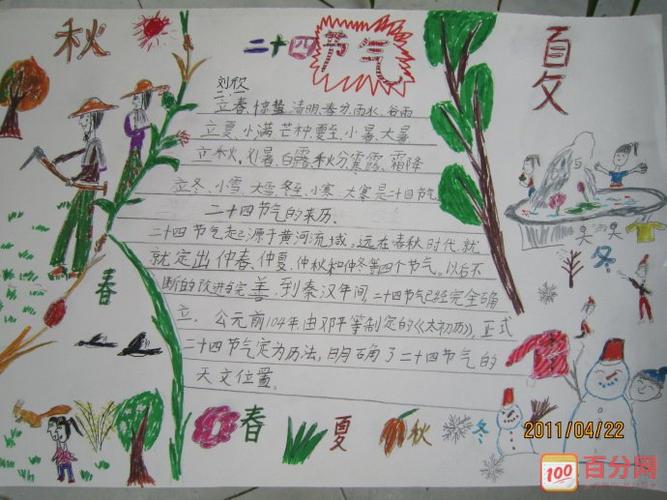 秋
二十四节气
夏
刘欣
立春、惊蛰、清明、春分、雨水、谷雨
立夏、小满、芒种、夏至、小暑、大暑
立秋、处暑、白露、秋分、寒露、霜降
立冬、小雪、大雪、冬至、小寒、大寒是二十四节气
二十四节气的来历、
二十四节气起源于黄河流域。远在春秋时代,就
就定出仲春、仲夏、仲秋和仲冬等四个节气。以后不
断的改进与完善,到秦汉年间,二十四节气已经完全确
立。公元前104年,由邓平等制定的《太初历》,正式
二十四节气定为历法,明确了二十四节气的
天文位置。
春
冬
春 夏 秋 冬
2011/04/22
100 百分网